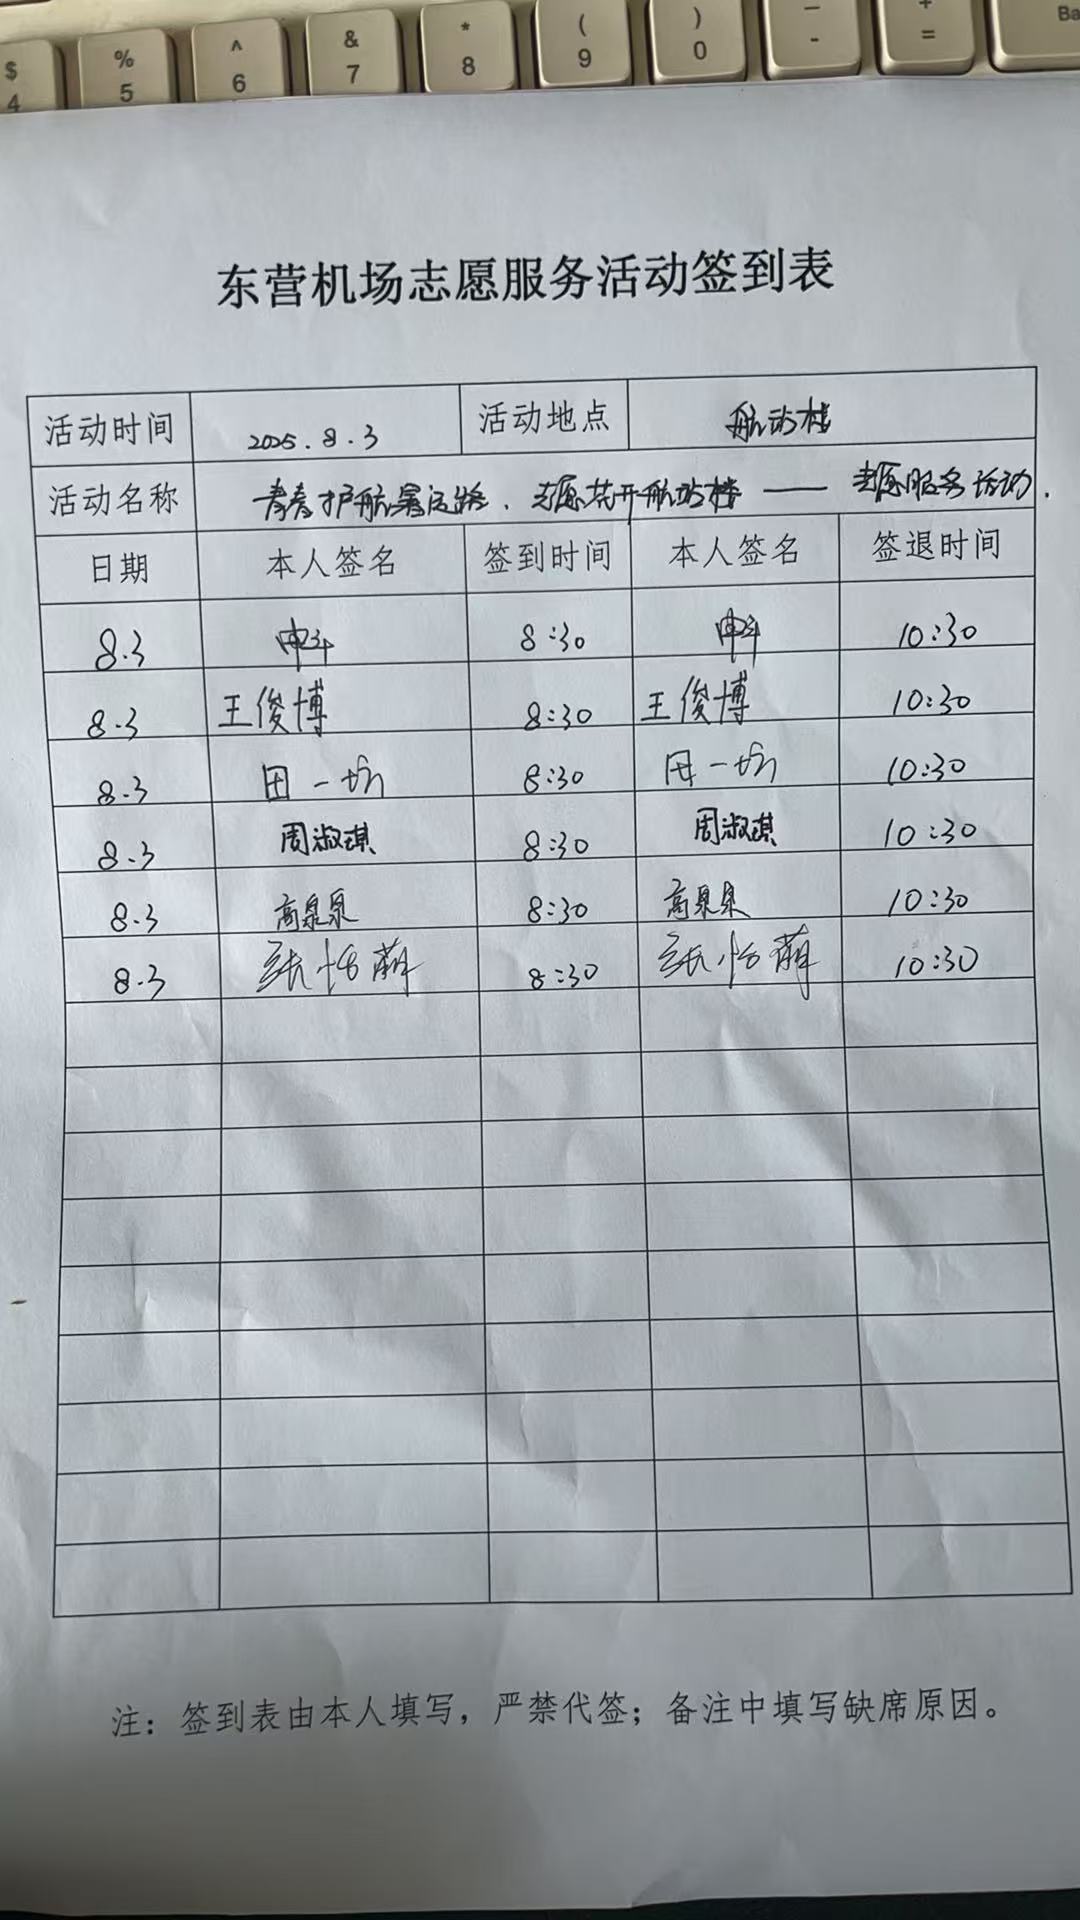 $ % ^ & * ( ) — +
4 5 6 7 8 9 0 - = Ba
东营机场志愿服务活动签到表
活动时间 2025.8.3 活动地点 航站楼
活动名称 青春护航暑运路、志愿花开航站楼——志愿服务活动.
日期 本人签名 签到时间 本人签名 签退时间
8.3 8:30 10:30
8.3 王俊博 8:30 王俊博 10:30
8.3 田一 8:30 田一 10:30
8.3 周淑琪 8:30 周淑琪 10:30
8.3 高泉泉 8:30 高泉泉 10:30
8.3 张怡萌 8:30 张怡萌 10:30
注：签到表由本人填写，严禁代签；备注中填写缺席原因。